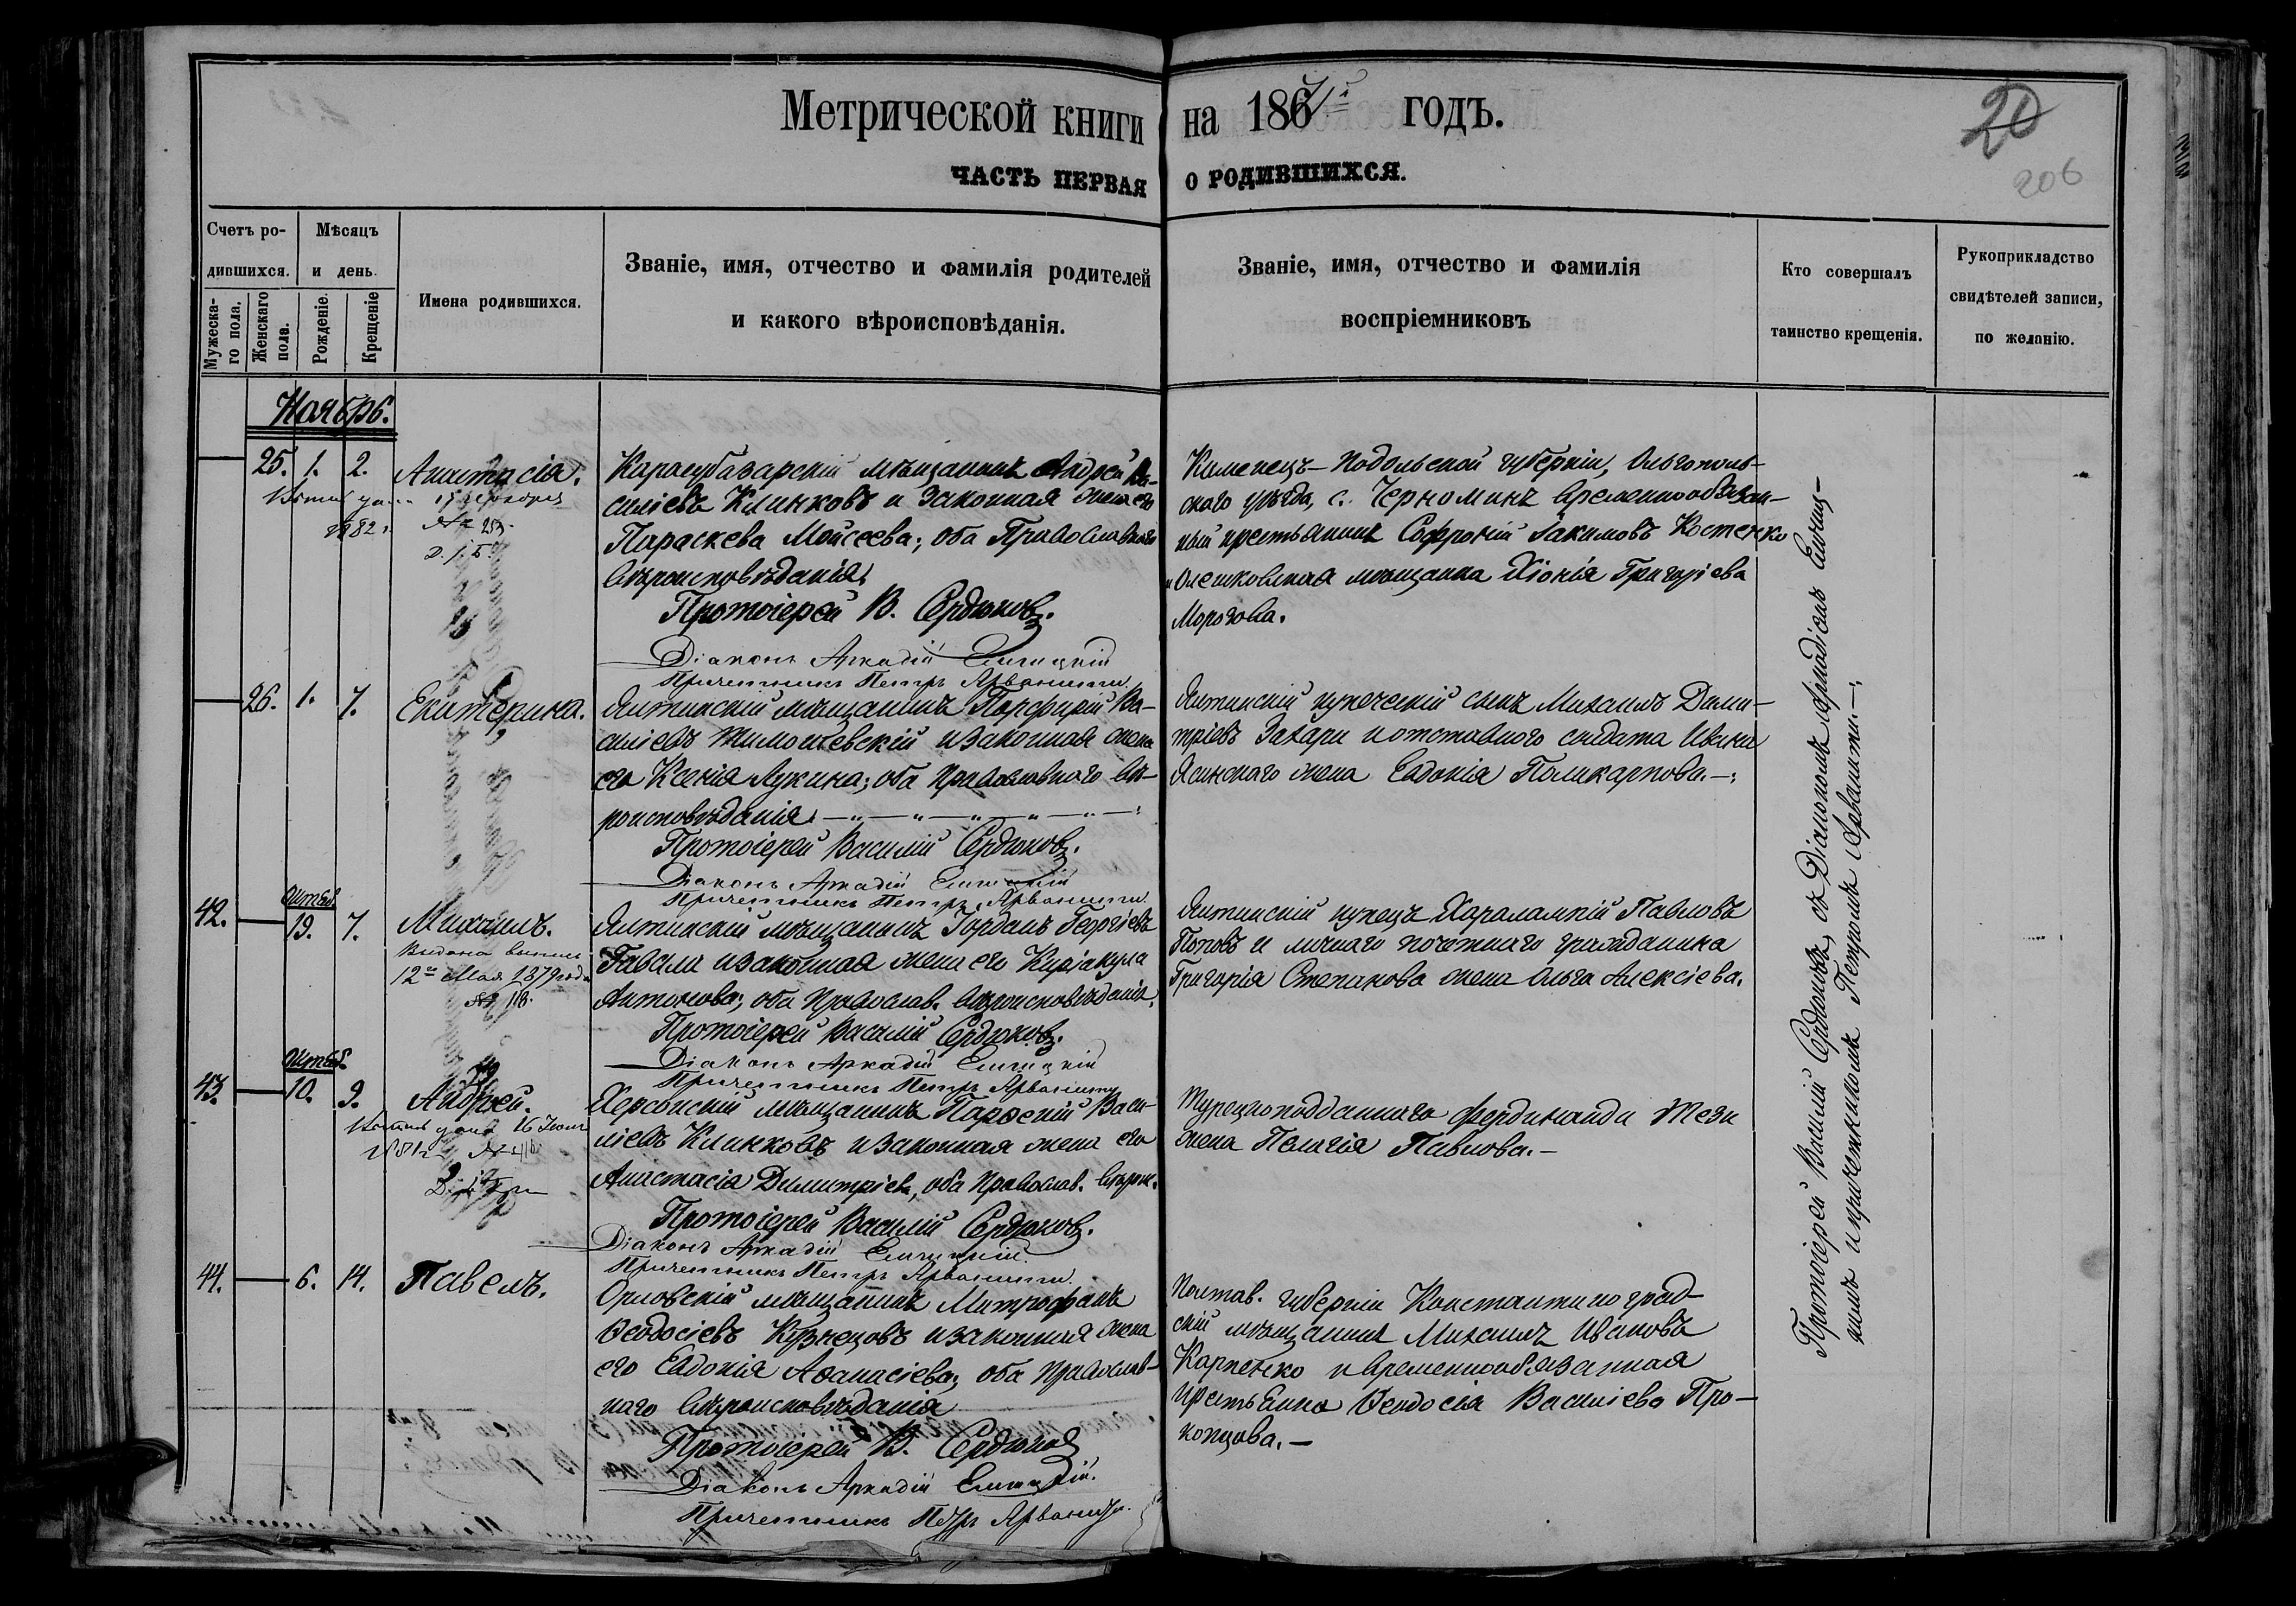 Метрической книги на 186 годъ.
20
206
ЧАСТЬ ПЕРВАЯ О РОДИВШИХСЯ.
Счетъ ро-
дившихся.
Мужеска-
го пола.
Женскаго
пола.
Мѣсяцъ
и день.
Рожденіе.
Крещеніе
Имена родившихся.
Званіе, имя, отчество и фамилія родителей
и какого вѣроисповѣданія.
Званіе, имя, отчество и фамилія
воспріемниковъ
Кто совершалъ
таинство крещенія.
Рукоприкладство
свидѣтелей записи,
по желанію.
Ноябрь.
25. 1. 2. Анастасія.
1882 г.
Карасубазарскій мѣщанинъ Андрей Ва-
силіевъ Клинковъ и законная жена его
Параскева Мойсеева; оба Православнаго
вѣроисповѣданія.
Протоіерей В. Сердюковъ.
Діаконъ Аркадій
Причетникъ Петръ Арванити
Каменецъ-Подольской губерніи, Ольгополь-
скаго уѣзда, с. Черноминъ временнообязан-
ный крестьянинъ Софроній Іакимовъ Костенко
и Олешковская мѣщанка Хіонія Григоріева
Морозова.
26. 1. 7. Екатерина.
Ялтинскій мѣщанинъ Порфирій Ва-
силіевъ Тимошевскій и законная жена
его Ксенія Лукина; оба Православнаго вѣ-
роисповѣданія.
Протоіерей Василій Сердюковъ.
Діаконъ Аркадій
Причетникъ Петръ Арванити
Ялтинскій купеческій сынъ Михаилъ Дими-
тріевъ Захари и отставнаго солдата Ивана
Ясинскаго жена Евдокія Поликарпова.
42. 19. 7. Михаилъ.
Выдана выпись
12го Мая 1879 года
№ 118.
Ялтинскій мѣщанинъ Іорданъ Георгіевъ
Гавала и законная жена его Киріакула
Антонова; оба Православ. вѣроисповѣданія.
Протоіерей Василій Сердюковъ.
Діаконъ Аркадій
Причетникъ Петръ Арванити
Ялтинскій купецъ Харалампій Павловъ
Поповъ и личнаго почетнаго гражданина
Григорія Степанова жена Ольга Алексіева.
43. 10. 9. Андрей.
Херсонскій мѣщанинъ Парѳеній Васи-
ліевъ Клинковъ и законная жена его
Анастасія Димитріева, оба Православ. вѣрои.
Протоіерей Василій Сердюковъ.
Діаконъ Аркадій
Причетникъ Петръ Арванити.
Турецкоподданнаго Фердинанда
жена Пелагія Павлова.
44. 6. 14. Павелъ.
Орловскій мѣщанинъ Митрофанъ
Ѳеодосіевъ Кузнецовъ и законная жена
его Евдокія Аѳанасіева; оба Православ-
наго вѣроисповѣданія
Протоіерей В. Сердюковъ
Діаконъ Аркадій
Причетникъ Петръ Арванити.
Полтав. губерніи Константиноград-
скій мѣщанинъ Михаилъ Ивановъ
Карпенко и временнообязанная
крестьянка Ѳеодосія Василіева Про-
копцова.
Протоіерей Василій Сердюковъ, съ Діакономъ
и причетникомъ Петромъ Арванити.